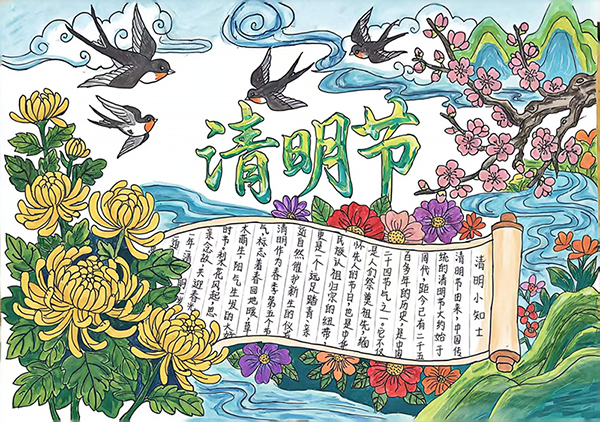 清明节
清明小知士
清明节由来,中国传
统的清明节大约始于
周代,距今已有二千五
百多年的历史,是中国
二十四节气之一。它不仅
是人们祭奠祖先,缅
怀先人的节日,也是中华
民族认祖归宗的纽带,
更是一个远足踏青、亲
近自然、催护新生的仪式
清明作为春季第五个节
气,标志着春回地暖,草
木萌生,阳气生发的大好
时节,梨花风起,思
亲念故,天迎春
年清明